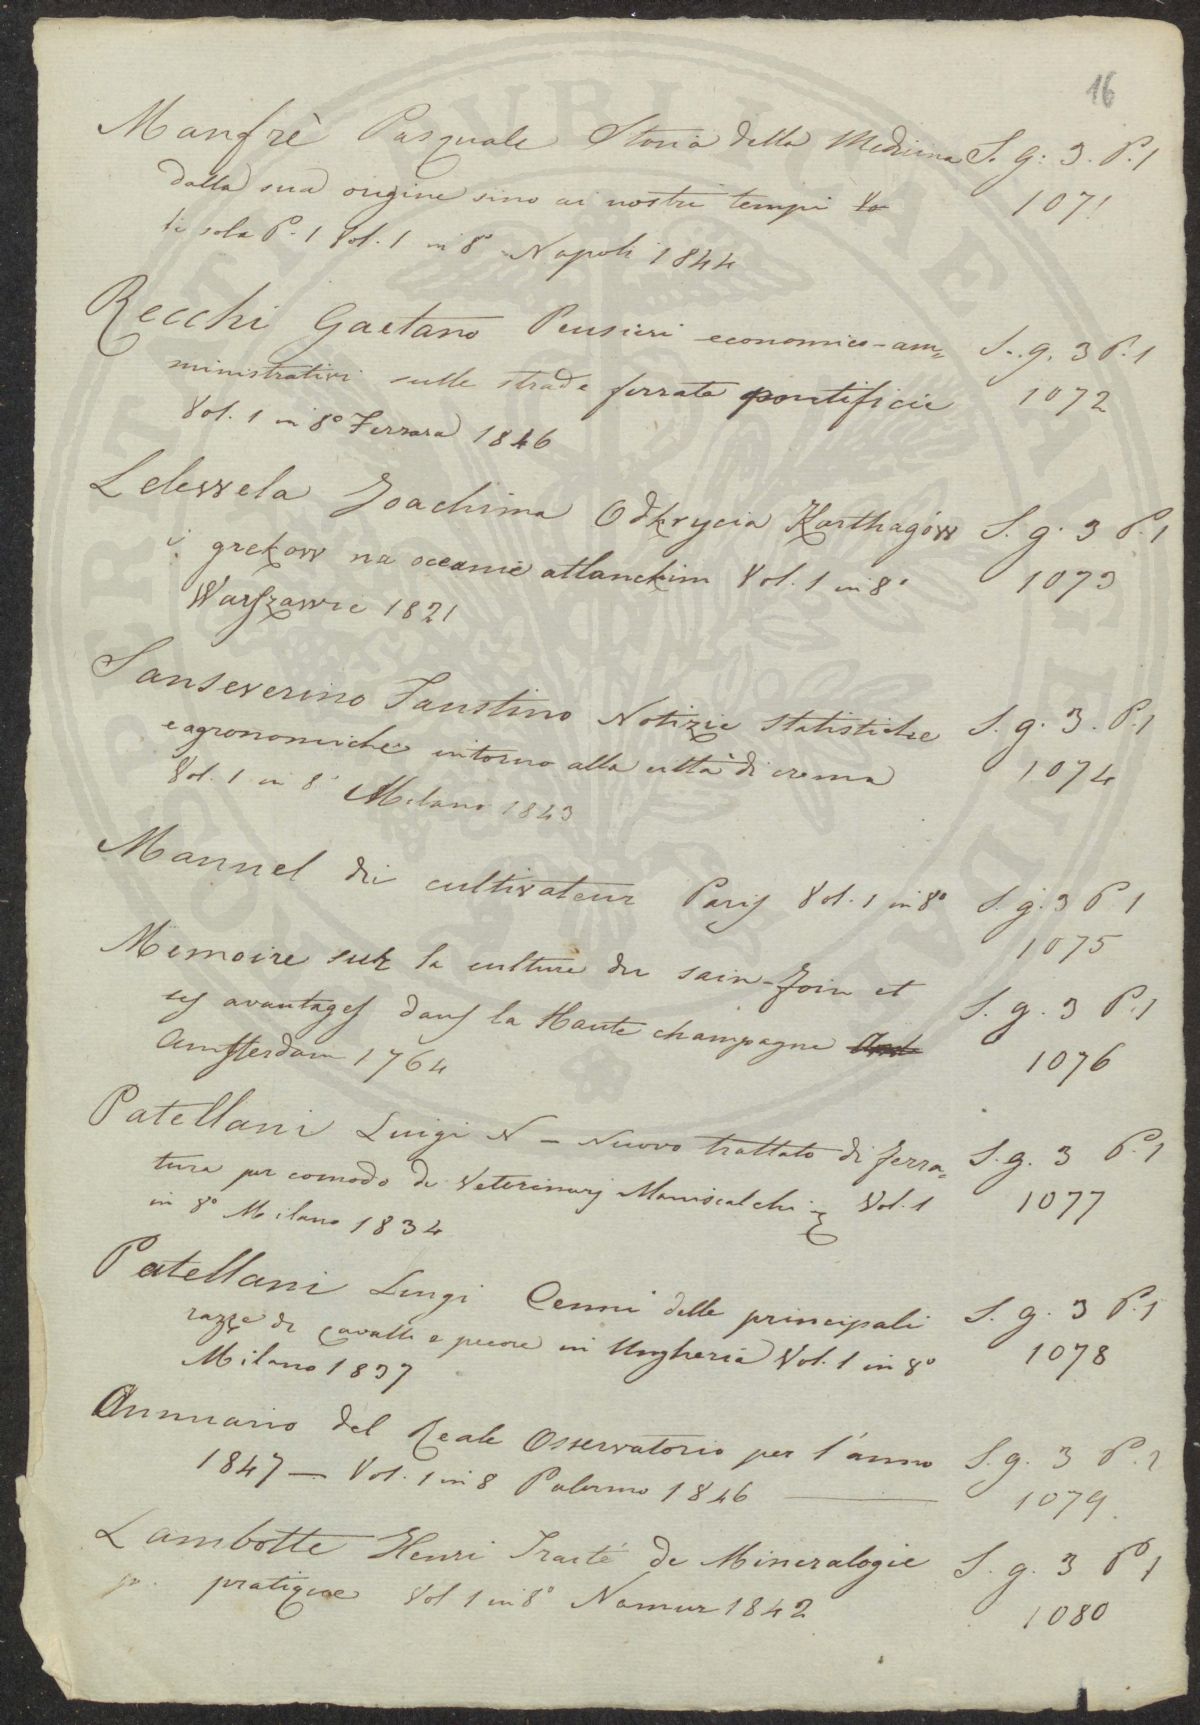 16
Manfrè Pasquale Storia della Medicina S. g: 3. P. 1
dalla sua origine sino ai nostri tempi 1071
la sola P. 1 Vol. 1 in 8° Napoli 1844
Recchi Gaetano Pensieri economico-am= S. g. 3 P. 1
ministrativi sulle strade ferrate pontificie 1072
Vol. 1 in 8° Ferrara 1846
Lelewela Joachima Odkrycia Karthagów S. g. 3 P. 1
i grekow na oceanie atlanckim Vol. 1 in 8° 1073
Warszawie 1821
Sanseverino Faustino Notizie statistiche S. g. 3. P. 1
e agronomiche intorno alla città di crema 1074
Vol. 1 in 8° Milano 1843
Mannel du cultivateur Paris Vol. 1 in 8° S. g. 3 P. 1
1075
Memoire sur la culture du sain-foin et
ses avantages dans la Haute champagne S. g. 3 P. 1
Amsterdam 1764 1076
Patellani Luigi N - Nuovo trattato di ferra= S. g. 3 P. 1
tura per comodo de Veterinarj Maniscalchi Vol. 1 1077
in 8° Milano 1834
Patellani Luigi Cenni delle principali S. g. 3 P. 1
razze di cavalli e pecore in Ungheria Vol. 1 in 8° 1078
Milano 1837
Annuario del Reale Osservatorio per l'anno S. g. 3 P. 2
1847 — Vol. 1 in 8 Palermo 1846 — 1079.
Lambotte Henri Traité de Mineralogie S. g. 3 P. 1
pratique Vol 1 in 8° Namur 1842 1080